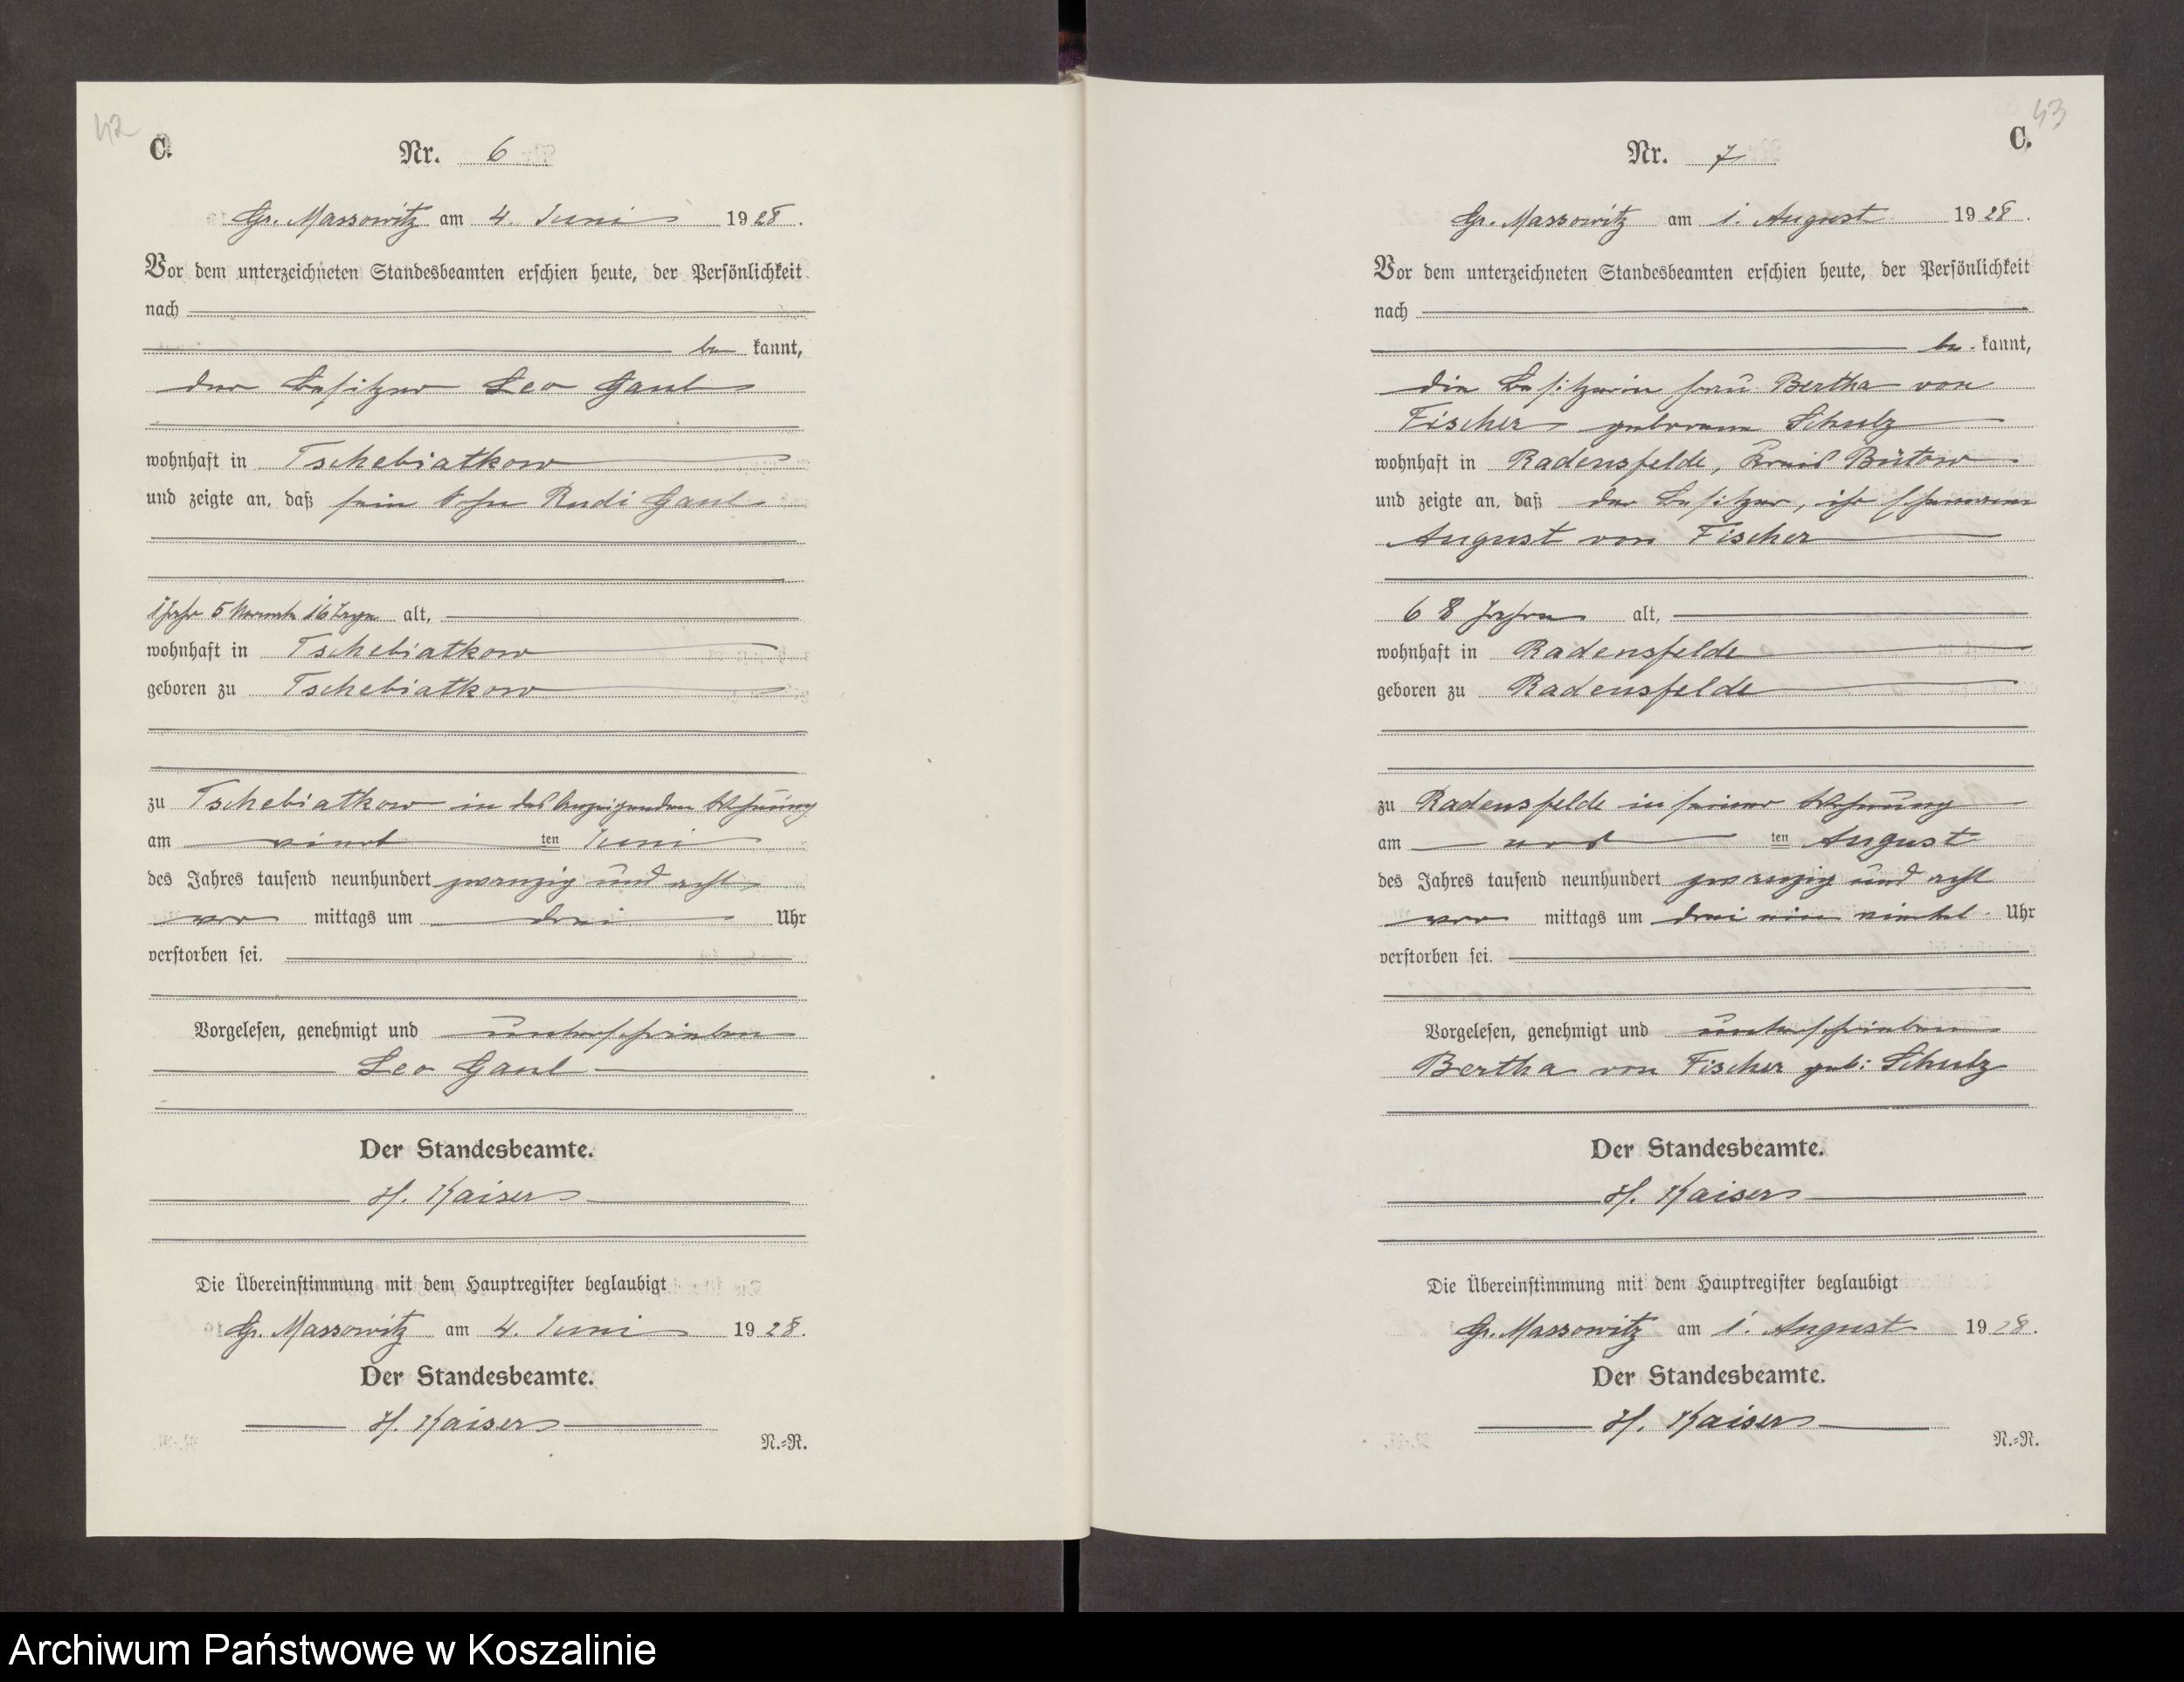 42
C.
Nr. 6
Gr. Massowitz am 4. Juni 1928.
Vor dem unterzeichneten Standesbeamten erschien heute, der Persönlichkeit
nach
be kannt,
der Besitzer Leo Gaul
wohnhaft in Tschebiatkow
und zeigte an, daß sein Sohn Rudi Gaul
1 Jahr 5 Monate 16 Tage alt,
wohnhaft in Tschebiatkow
geboren zu Tschebiatkow
zu Tschebiatkow in des Anzeigenden Wohnung
am vierten Juni
des Jahres tausend neunhundert zwanzig und acht
vor mittags um drei Uhr
verstorben sei.
Vorgelesen, genehmigt und unterschrieben
Leo Gaul
Der Standesbeamte.
H. Kaiser
Die Übereinstimmung mit dem Hauptregister beglaubigt
Gr. Massowitz am 4. Juni 1928.
Der Standesbeamte.
H. Kaiser
N.=R.
43
C.
Nr. 7
Gr. Massowitz am 1. August 1928.
Vor dem unterzeichneten Standesbeamten erschien heute, der Persönlichkeit
nach
be kannt,
die Besitzerin Frau Bertha von
Fischer geborene Schulz
wohnhaft in Radensfelde, Kreis Bütow
und zeigte an, daß der Besitzer, ihr Ehemann
August von Fischer
68 Jahre alt,
wohnhaft in Radensfelde
geboren zu Radensfelde
zu Radensfelde in seiner Wohnung
am ersten August
des Jahres tausend neunhundert zwanzig und acht
vor mittags um drei ein viertel Uhr
verstorben sei.
Vorgelesen, genehmigt und unterschrieben
Bertha von Fischer geb: Schulz
Der Standesbeamte.
H. Kaiser
Die Übereinstimmung mit dem Hauptregister beglaubigt
Gr. Massowitz am 1. August 1928.
Der Standesbeamte.
H. Kaiser
N.=R.
Archiwum Państwowe w Koszalinie